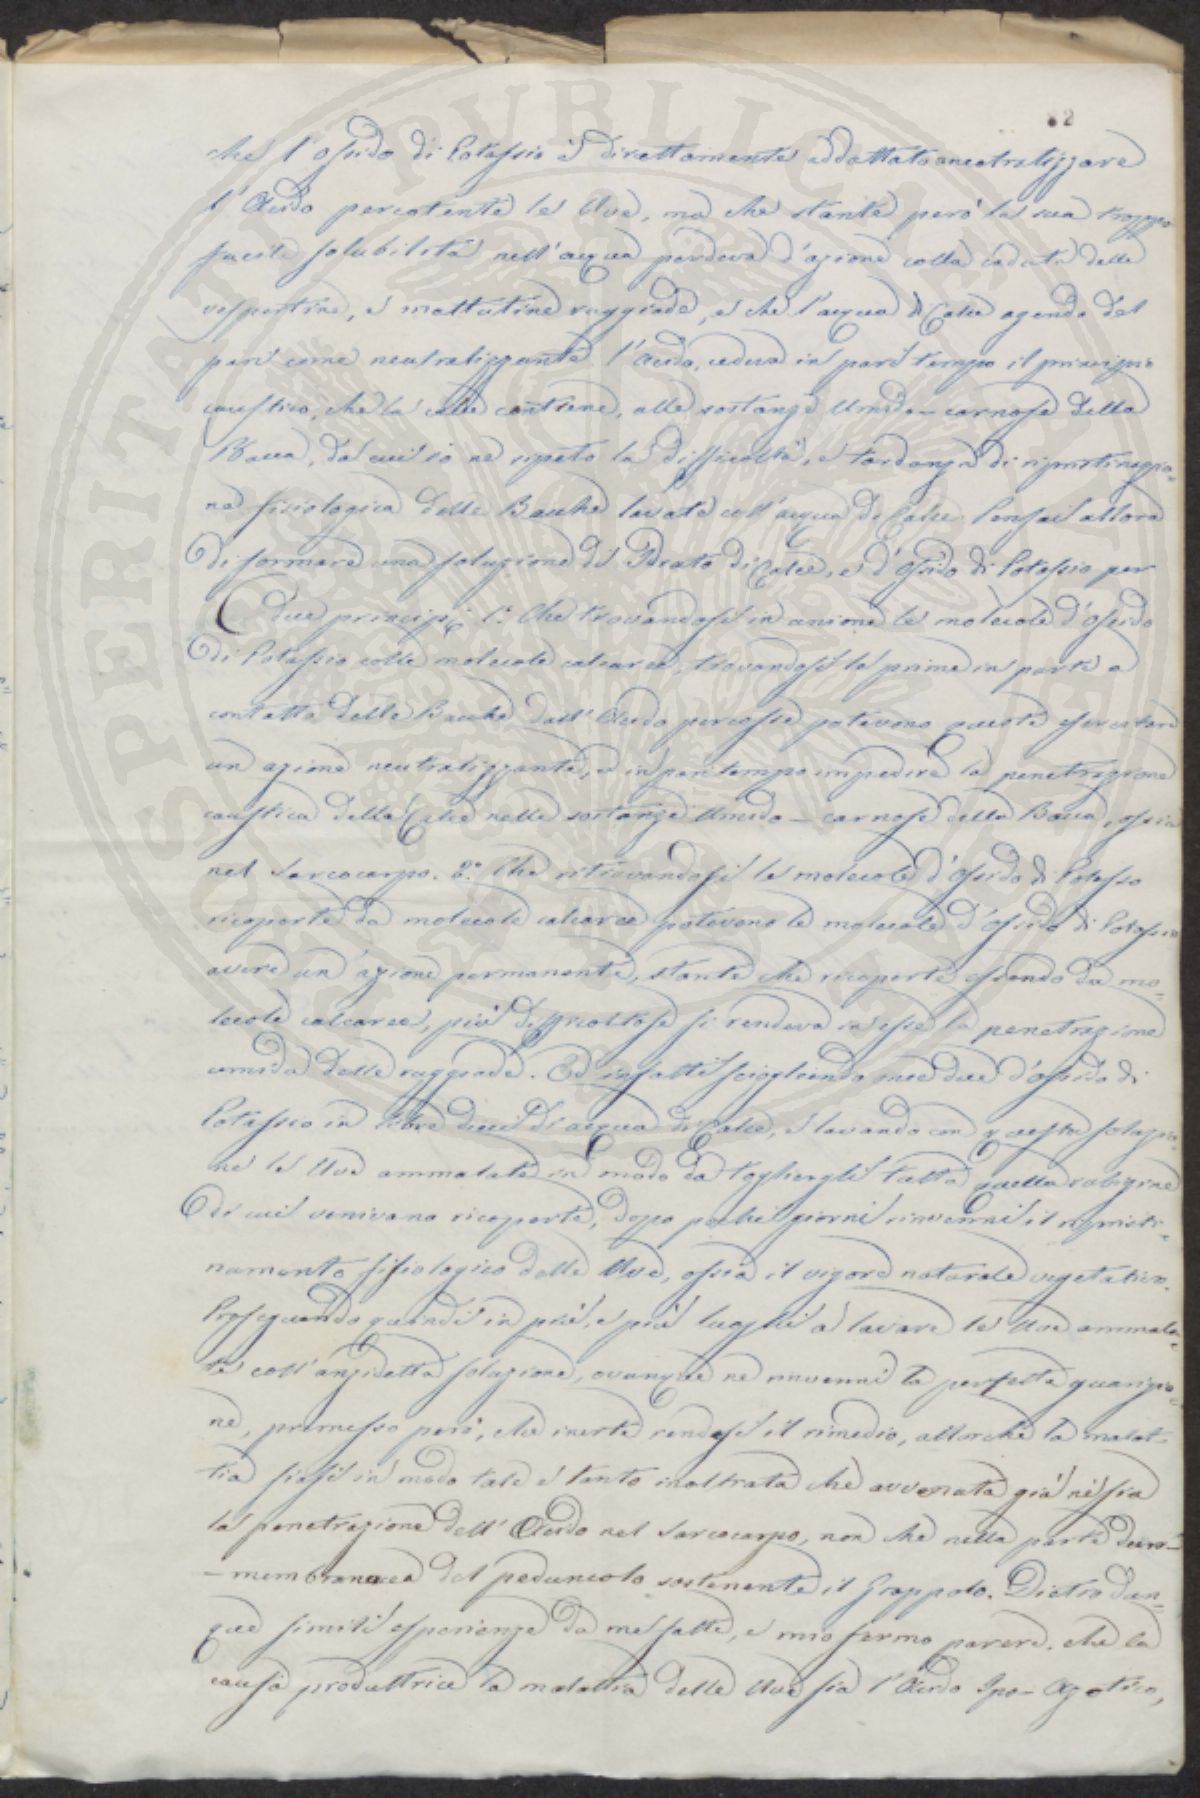 82
che l'ossido di Potassio è direttamente addottato a neutralizzare
l'Acido percotente le Uve, ma che stante però la sua troppo
facile solubilità nell'acqua perdeva d'azione colla caduta delle
vespertine, e mattutine ruggiade, e che l'acqua di Calce agendo del
pari come neutralizzante l'Acido, cedeva in pari tempo il principio
caustico, che la calce contiene, alle sostanze Umido-carnose della
Bacca, da cui io ne ripeto la difficoltà, e tardanza di ripristinazio-
ne fisiologica delle Bacche lavate coll'acqua di Calce. Pensai allora
di formare una soluzione di Idrato di Calce, e d'ossido di Potassio per
due principj: 1.° Che trovandosi in unione le molecole d'ossido
di Potassio colle molecole calcaree, trovandosi le prime in parte a
contatto delle Bacche dall'Acido percosse potevano queste esercitare
un azione neutralizzante, e in pari tempo impedire la penetrazione
caustica della Calce nelle sostanze Umido-carnose della Bacca, ossia
nel Sarcocarpo. 2.° Che ritrovandosi le molecole d'ossido di Potassio
ricoperte da molecole calcaree potevono le molecole d'ossido di Potassio
avere un'azione permanente, stante che ricoperte essendo da mo-
lecole calcaree, più difficoltose si rendeva in esse la penetrazione
umida delle ruggiade. Ed infatti sciogliendo once due d'ossido di
Potassio in libre dieci di acqua di Calce, e lavando con questa soluzio-
ne le Uve ammalate in modo da togliergli tutta quella rubigine
di cui venivano ricoperte, dopo pochi giorni rinvenni il ripristi-
namento fisiologico delle Uve, ossia il vigore naturale vegetativo.
Proseguendo quindi in più, e più luoghi a lavare le Uve ammala-
te coll'anzidetta soluzione, ovunque ne rinvenni la perfetta guarigio-
ne, premesso però, che inerte rendesi il rimedio, allorchè la malat-
tia siasi in modo tale e tanto inoltrata che avvenuta già ne sia
la penetrazione dell'Acido nel Sarcocarpo, non che nella parte duro-
-membranacea del peduncolo sostenente il Grappolo. Dietro dun-
que simili esperienze da me fatte, è mio fermo parere, che la
causa produttrice la malattia delle Uve sia l'Acido Ipo-Azotico,